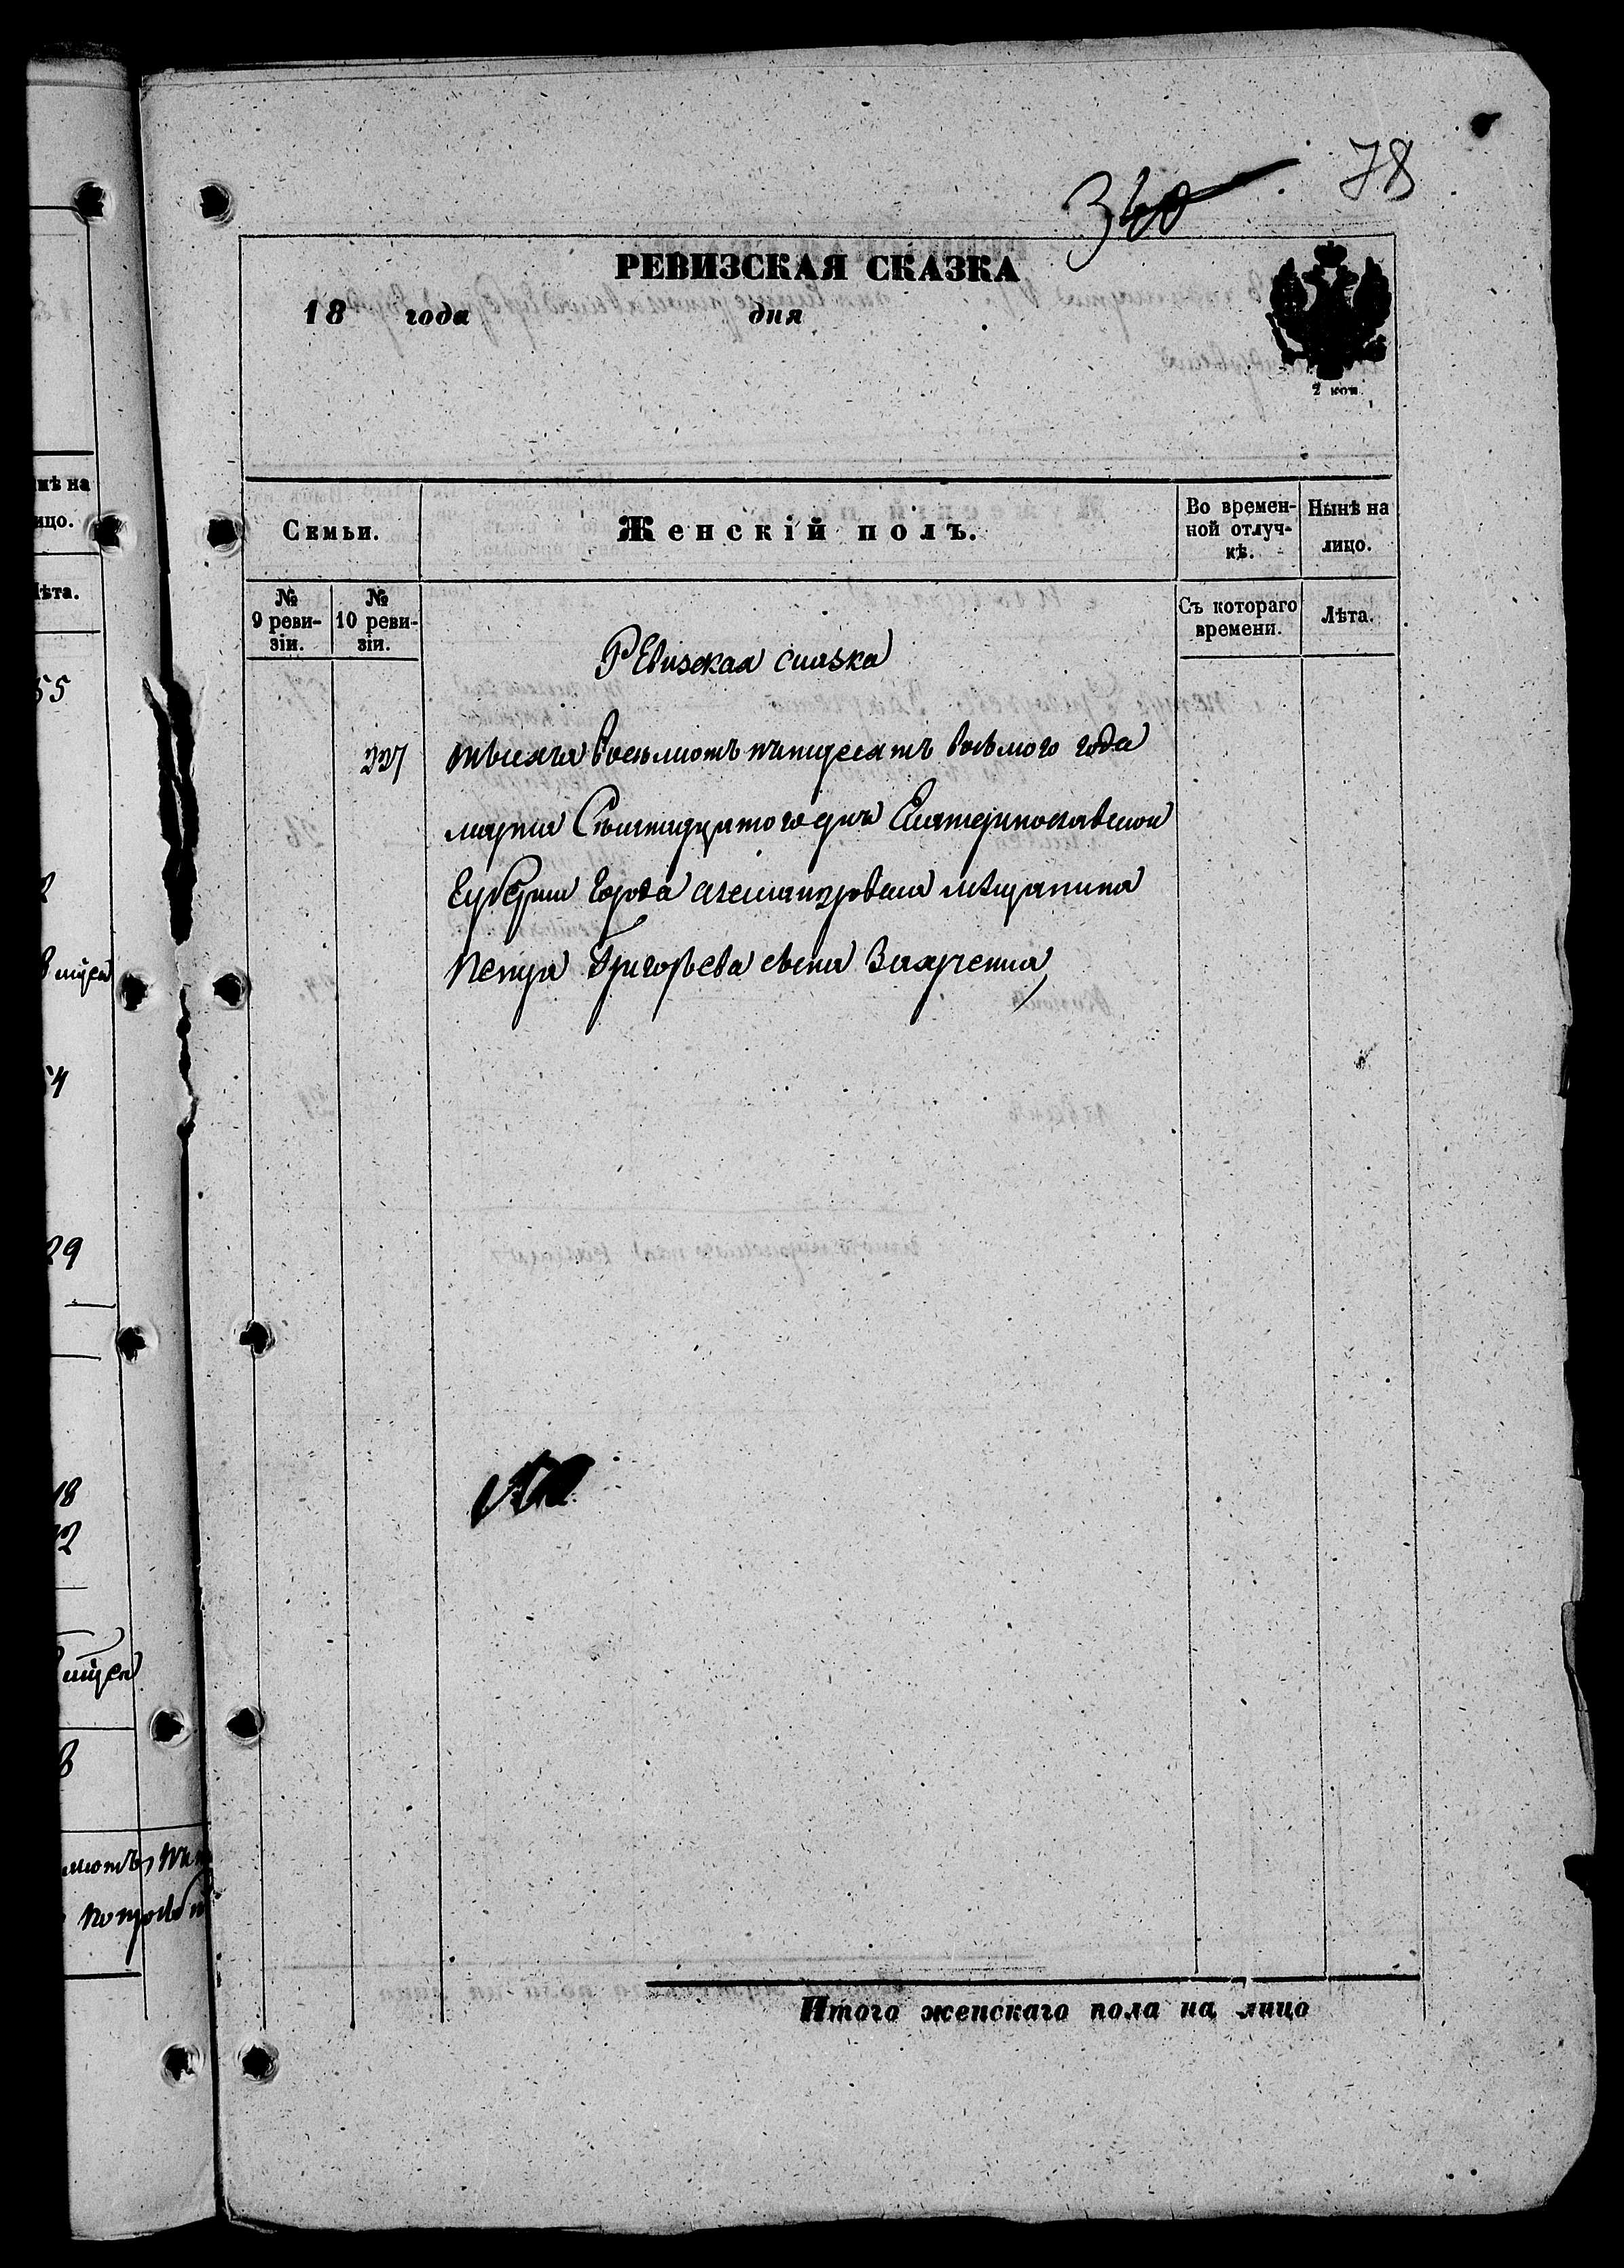 78
340
РЕВИЗСКАЯ СКАЗКА
18 года дня
2 коп.
Семьи.
Женскій полъ.
Во времен-
ной отлуч-
кѣ.
Нынѣ на
лицо.
№
9 реви-
зіи.
№
10 реви-
зіи.
Съ котораго
времени.
Лѣта.
Ревизская сказка
227 тысяча восемьсотъ пятдесятъ восьмого года
марта Екатеринославской
Губерніи города Александровска мѣщанина
Петра Григорьева сына Захаренка
Итого женскаго пола на лицо
нѣ на
ицо.
ѣта.
55
29
18